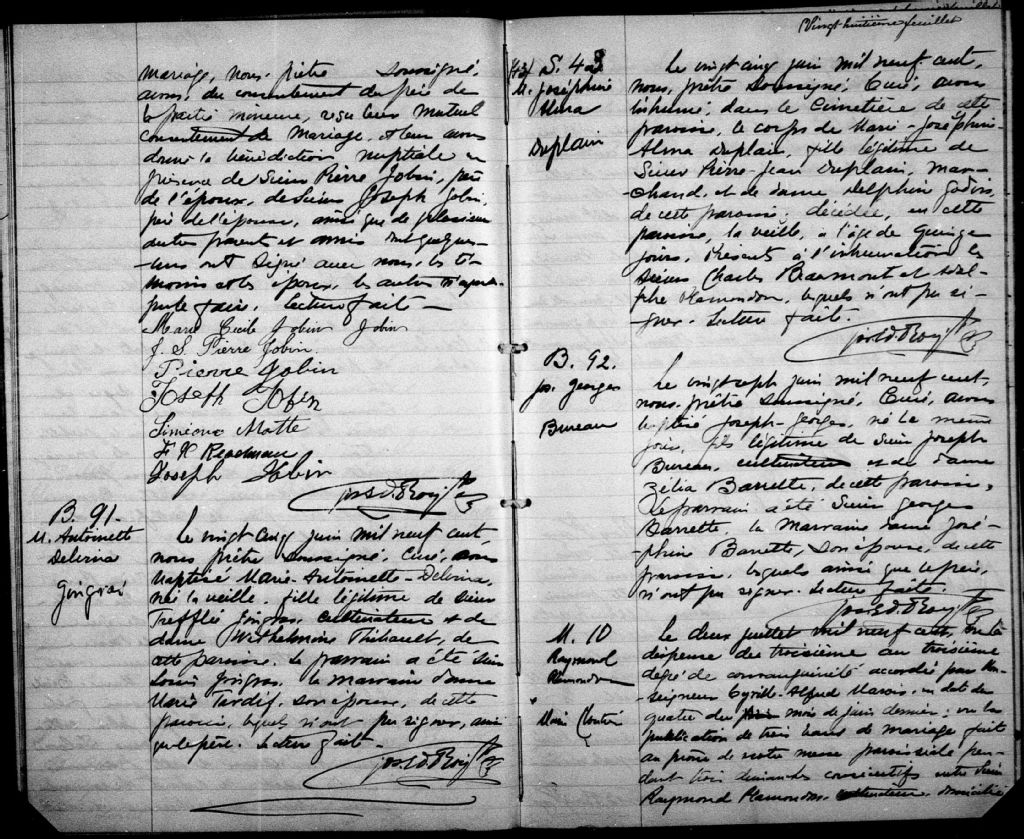 mariage, nous, prêtre soussigné,
avons, du consentement du père de
la partie mineure, reçu leur mutuel
consentement de mariage, et leur avons
donné la bénédiction nuptiale en
présence de Sieur Pierre Jobin, père
de l'époux, de Sieur Joseph Jobin,
père de l'épouse, ainsi que de plusieurs
autres parents et amis dont quelques-
-uns ont signé avec nous, les té-
moins et les époux, les autres n'ayant
pu le faire. Lecture faite—
Marie Cécile Jobin Jobin
J. S. Pierre Jobin.
Pierre Jobin
Joseph Jobin
Siméone Matte
F X
Joseph Jobin
Jos. D. Roy Ptr
B. 91.
M. Antoinette
Delvina
Gingras
Le vingt cinq juin mil neuf cent,
nous prêtre soussigné, Curé, avons
baptisé Marie-Antoinette-Delvina,
née la veille, fille légitime de Sieur
Trefflée Gingras, cultivateur et de
dame Wilhelmine Thibault, de
cette paroisse. Le parrain a été Sieur
Louis Gingras, la marraine dame
Marie Tardif, son épouse, de cette
paroisse, lesquels n'ont pu signer, ainsi
que le père. Lecture faite.-
Jos. D. Roy Ptr
Vingt huitième feuillet
S. 43
M. Joséphine
Alma
Duplain
Le vingt cinq juin mil neuf cent,
nous, prêtre soussigné, Curé, avons
inhumé, dans le Cimetière de cette
paroisse, le corps de Marie-Joséphine-
Alma Duplain, fille légitime de
Sieur Pierre-Jean Duplain, mar-
-chand, et de dame Delphine Godin,
de cette paroisse, décédée, en cette
paroisse, la veille, à l'âge de quinze
jours. Présents à l'inhumation les
Sieurs Charles Beaumont et
Plamondon, lesquels n'ont pu si-
gner. Lecture faite.
Jos. D. Roy Ptr
B. 92.
Jos. Georges
Bureau
Le vingt sept juin mil neuf cent,
nous, prêtre soussigné, Curé, avons
baptisé Joseph-Georges, né le même
jour, fils légitime de Sieur Joseph
Bureau, cultivateur et de dame
Zélia Barrette, de cette paroisse,
Le parrain a été Sieur Georges
Barrette, la marraine dame José-
-phine Barrette, son épouse, de cette
paroisse, lesquels ainsi que le père,
n'ont pu signer. Lecture faite.
Jos. D. Roy Ptr
M. 10
Raymond
Plamondon
Marie Cloutier
Le deux juillet mil neuf cent, vu la
dispense du troisième au troisième
degré de consanguinité accordée par Mon-
Seigneur Cyrille-Alfred Marois, en date du
quatre du mois de juin dernier; vu la
publication de trois bans de mariage faite
au prône de notre messe paroissiale pen-
dant trois dimanches consécutifs entre Sieur
Raymond Plamondon, cultivateur, domicilié